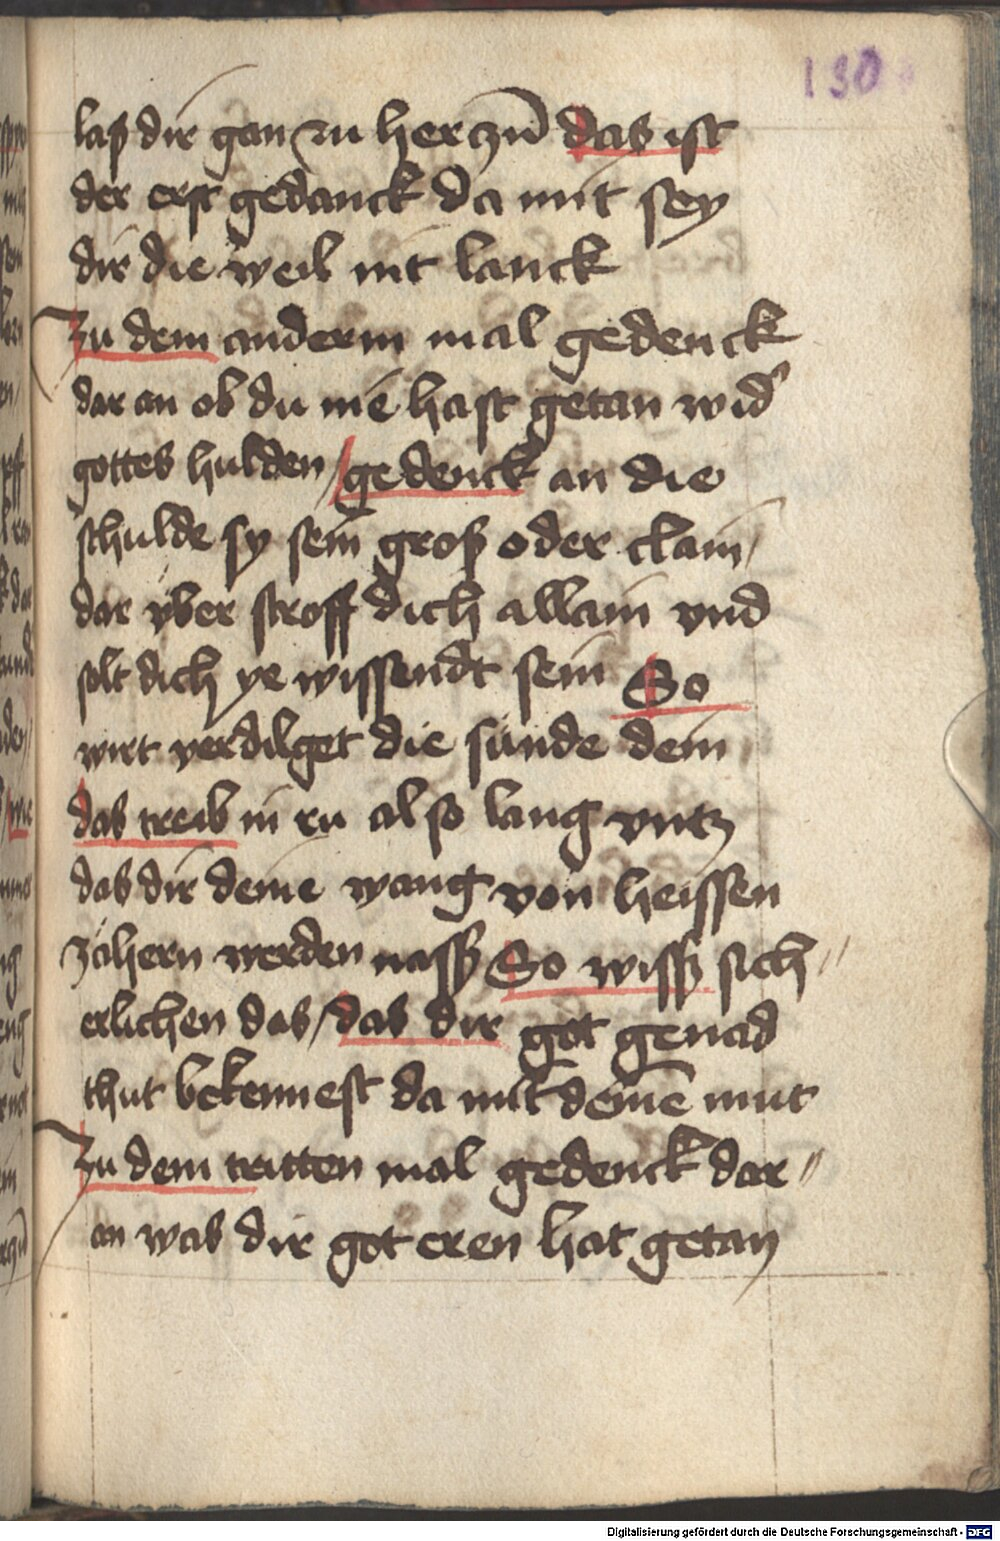 130
laß dir gan zu herczn̄ das ist
der erst gedanck da mit sey
dir die weil nit lanck
Zu dem anderm mal gedenck
dar an ob du nie hast getan wid̕
gottes hulden / gedenck an die
schulde sy sein groß oder clain /
dar yber stroff dich allain vnd
solt dich ye wissendt sein So
wirt verdilget die sünde dein
das treib in ru also lang vntz
das dir deine wang von heissen
zähern werden nassß So wissß sich̕ //
erlichen das / das dir got genad
thut bekennest da mit deinē mut
Zu dem tritten mal gedenck dar //
an was dir got eren hat getan
Digitalisierung gefördert durch die Deutsche Forschungsgemeinschaft - DFG